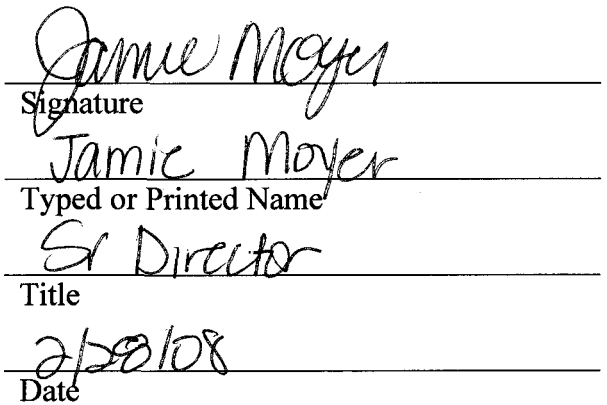 Jamie Moyer
Signature
Jamie Moyer
Typed or Printed Name
Sr Director
Title
2/28/08
Date